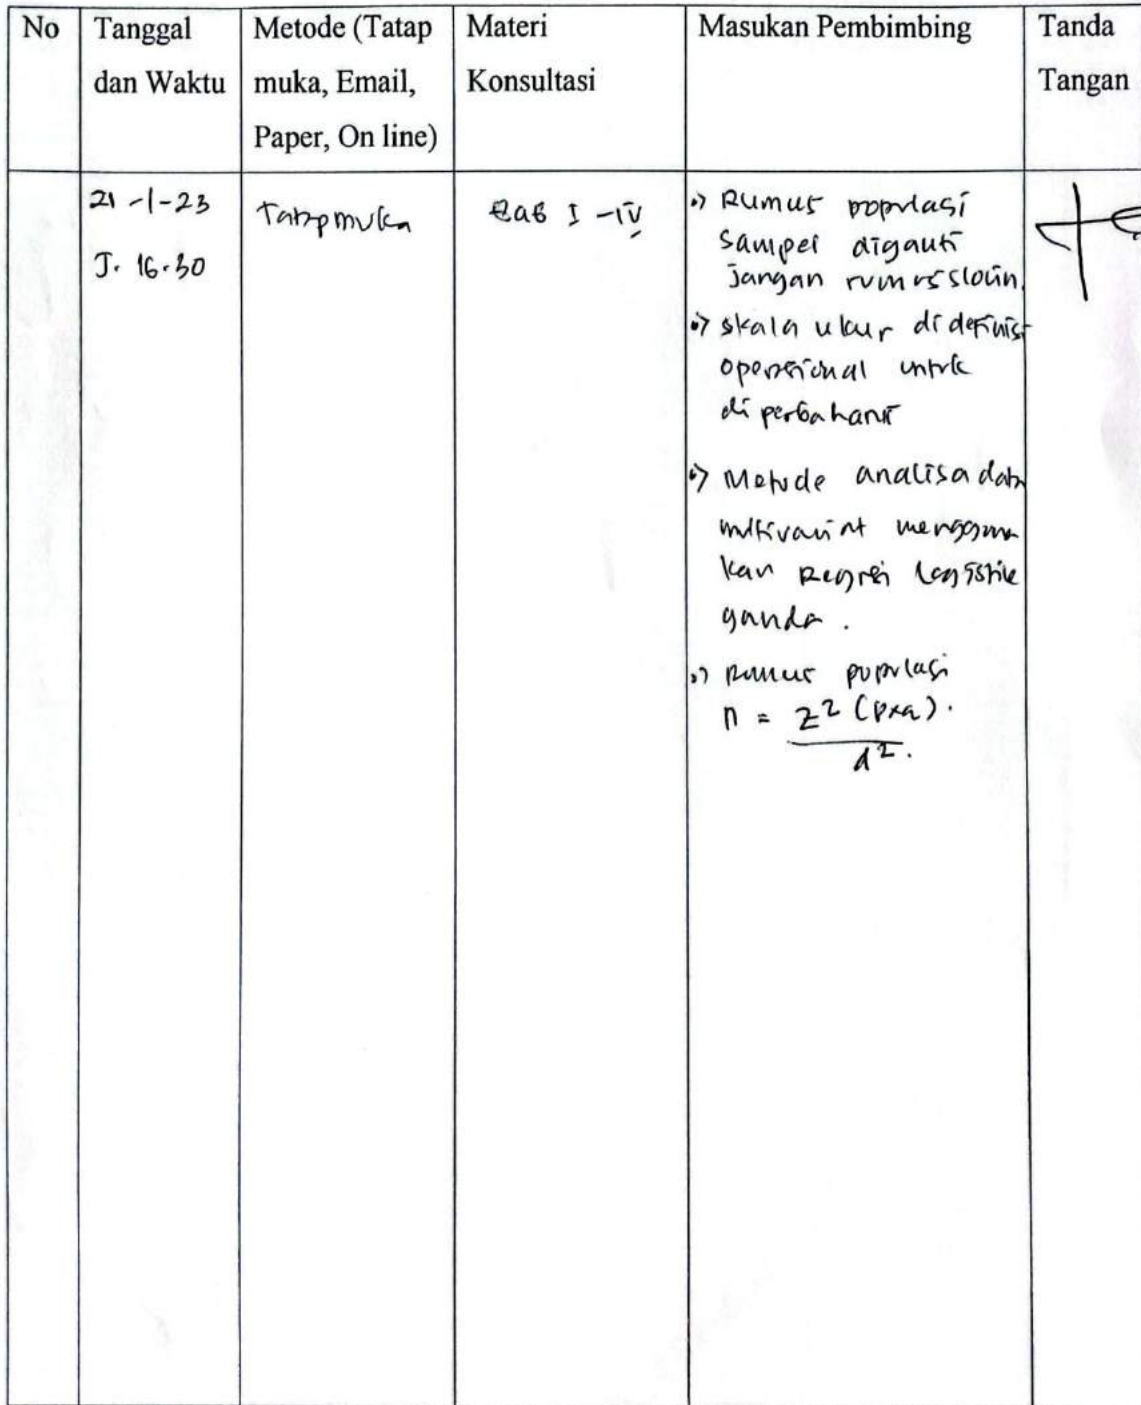 No
Tanggal
dan Waktu
Metode (Tatap
muka, Email,
Paper, On line)
Materi
Konsultasi
Masukan Pembimbing
Tanda
Tangan
21 -1-23
J. 16.30
Tatapmuka
Bab I - IV
Rumus populasi
Sampel diganti
jangan rumus slovin.
skala ukur di definisi
operasional untuk
di perbahanti
Metode analisa data
multivariat menggunakan
kan Regresi logistik
ganda.
Rumus populasi
n = Z² (pxq).
d².